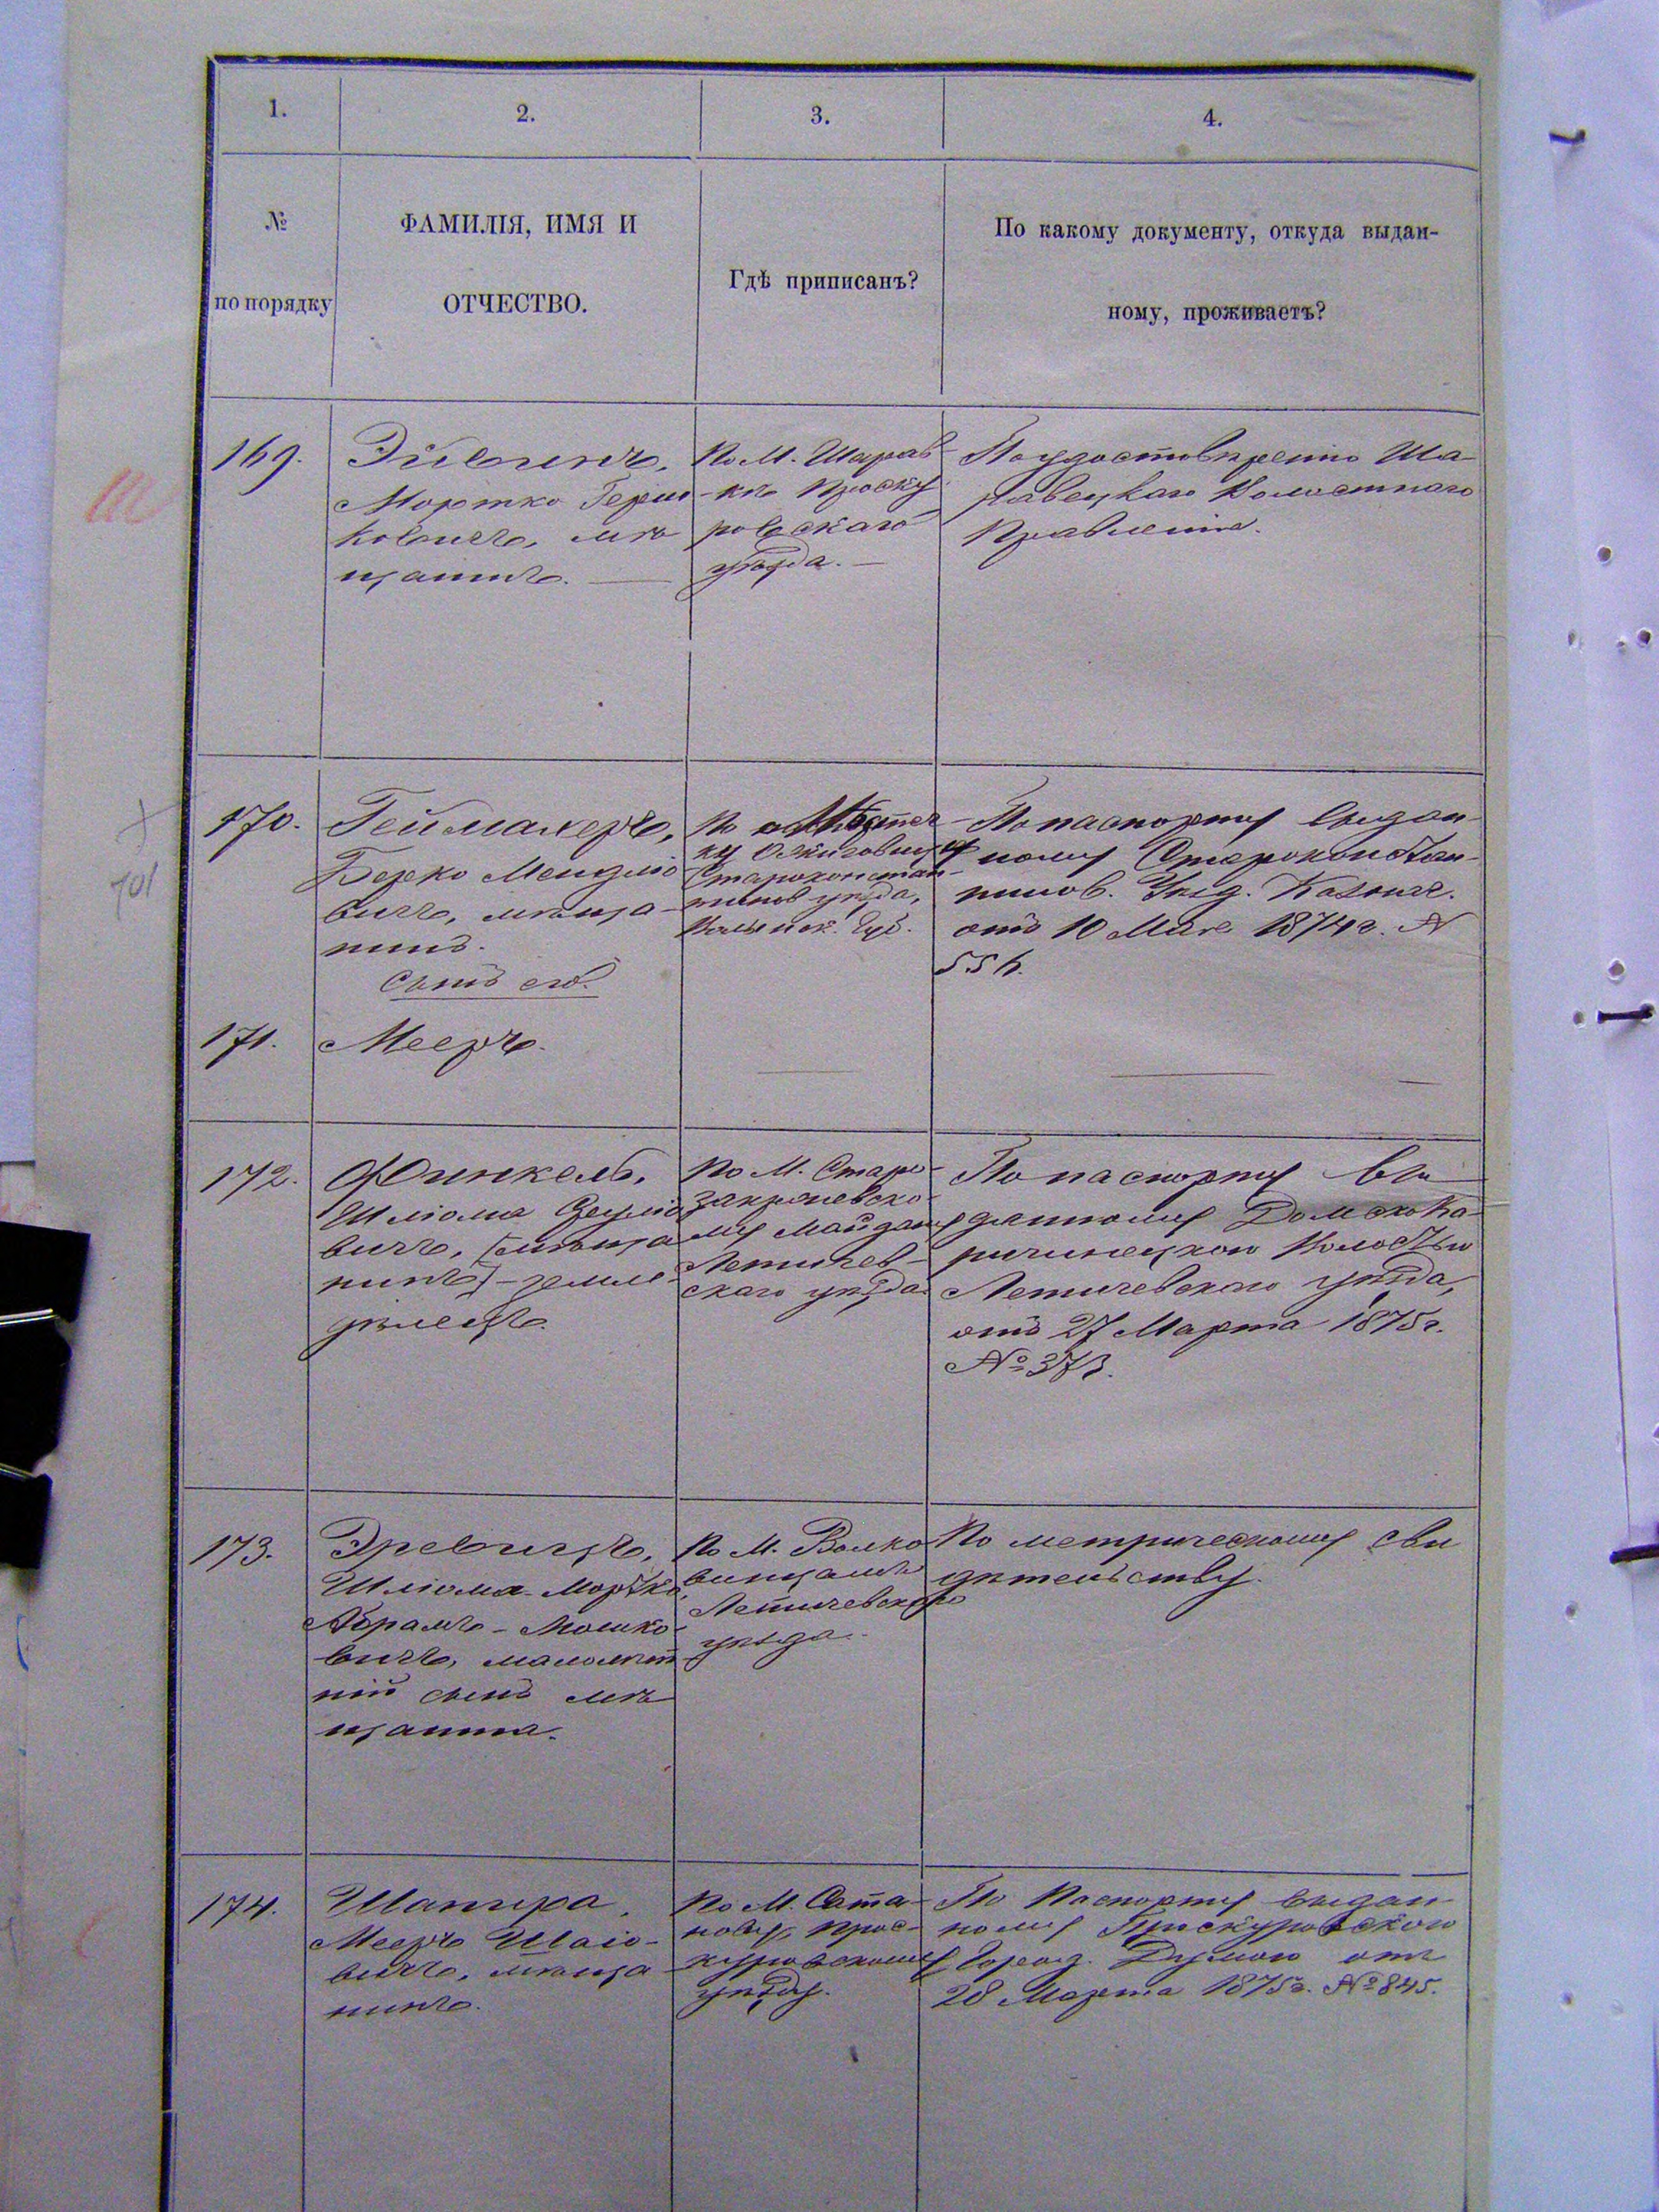 1.
2.
3.
4.
№
по порядку
ФАМИЛІЯ, ИМЯ И
ОТЧЕСТВО.
Гдѣ приписанъ?
По какому документу, откуда выдан-
ному, проживаетъ?
169.
Мортко Герш
ковичъ, мѣ
щанинъ.
По М. Шарав
-кѣ Проску
ровскаго
уѣзда.
По удостовѣренію Ша-
равецкаго Волостнаго
Правленія.
170.
Геймахеръ,
Берко Мендліо
вичъ, мѣща-
нинъ.
Сынъ его.
По Мѣстеч-
ку Ожиговцу
Староконстан-
тинов уѣзда,
Волынск. Губ.
По паспорту выдан-
ному Староконстан-
тинов. Уѣзд. Казнач.
отъ 10 Мая 1874 г. №
171.
Мееръ.
172.
Финкель,
Шліома
вичъ, (мѣща
нинъ) - земле-
дѣлецъ.
По М. Старо-
Закревско-
му Майдану
Летичев-
скаго уѣзда
По паспорту вы
данному
ричинецкою Волостью
Летичевскаго уѣзда,
отъ 27 Марта 1875 г.
№ 373.
173.
Шліома-Мортко
Абрамъ-Мошко-
вичъ, малолѣт
ній сынъ мѣ
щанина.
По М. Волко
винцамъ
Летичевскаго
уѣзда.
По метрическому сви
дѣтельству.
174.
Шапира,
Мееръ Шаіо-
вичъ, мѣща
нинъ.
По М. Сата-
нову, Прос-
куровскому
уѣзду.
По Паспорту выдан
ному Проскуровскою
Город. Думою отъ
28 Марта 1875 г. № 845.
701